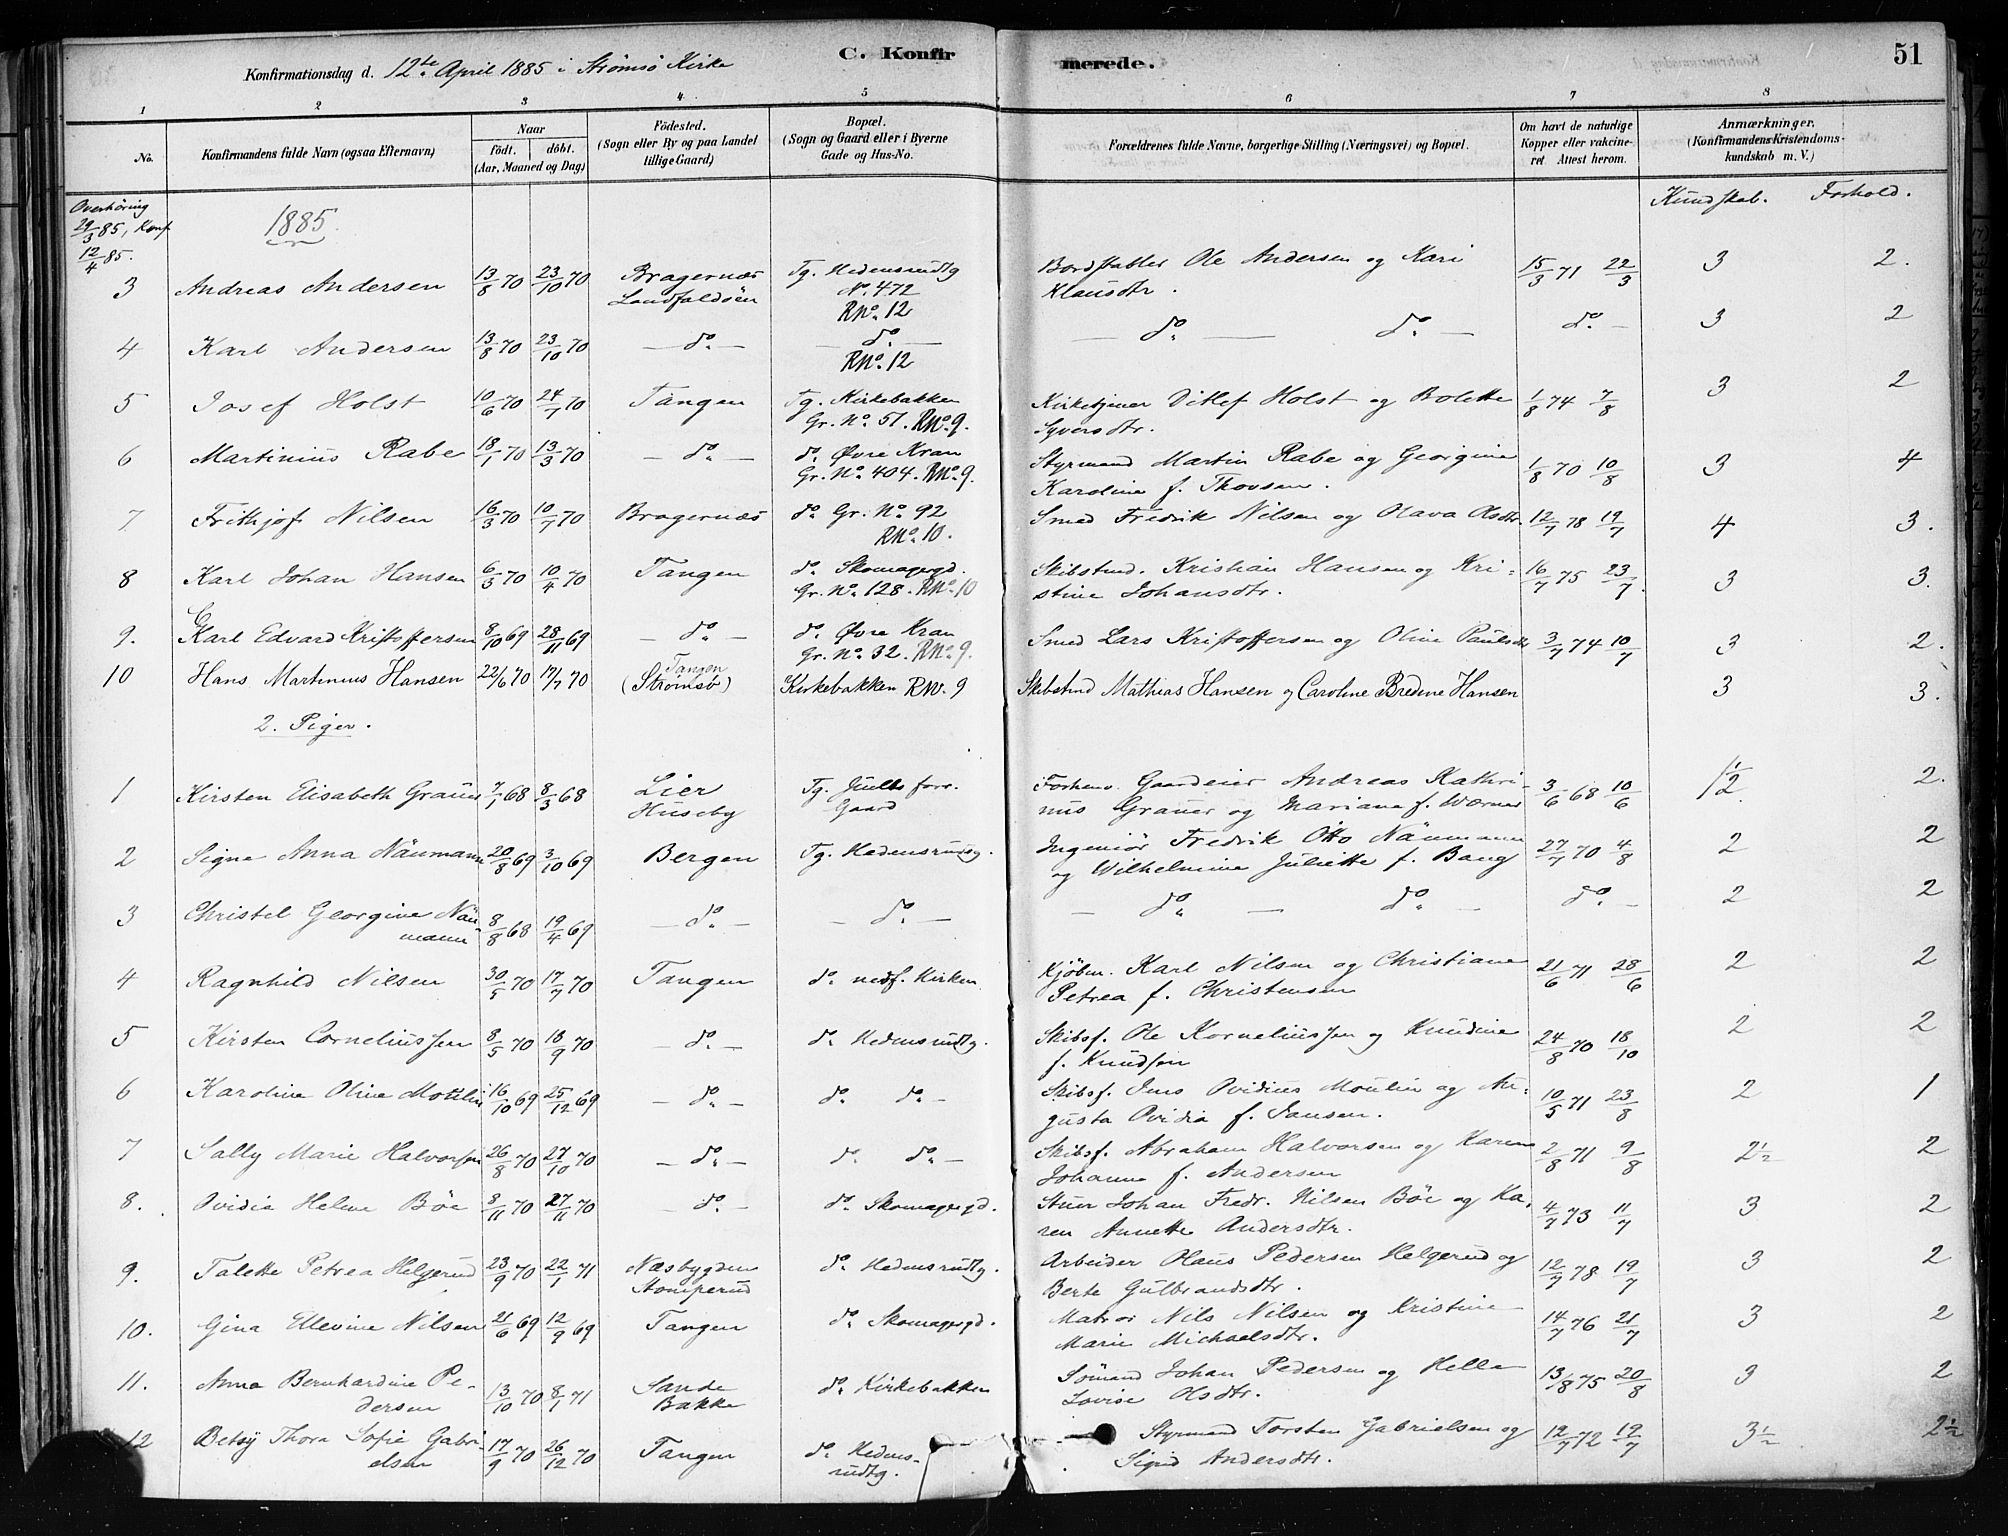 Konfirmationsdag d. 12te April 1885 i Strømsø Kirke
C. Konfirmerede.
51
1 2 3 4. 5 6 7 8
No.
Konfirmandens fulde Navn (ogsaa Efternavn)
Naar
födt. döbt.
(Aar, Maaned og Dag)
Födested.
(Sogn eller By og paa Landet
tillige Gaard)
Bopæl.
(Sogn og Gaard eller i Byerne
Gade og Hus-No.
Forældrenes fulde Navne, borgerlige Stilling (Næringsvei) og Bopæl.
Om havt de naturlige
Kopper eller vakcine-
ret Attest herom.
Anmærkninger,
(Konfirmandens Kristendoms-
kundskab m. V.)
Kundskab. Forhold.
Overhöring
29/3 85, Konf
12/4 85.
1885.
3 Andreas Andersen 13/8 70 23/10 70 Bragernæs Tg. Hedensrudtg Bordstabler Ole Andersen og Kari 15/3 71 22/3 3 2.
Landfaldsöen No. 472 Klausdtr.
RNo. 12
4 Karl Andersen 13/8 70 23/10 70 — do. — — do. — — do. — do. — do. — 3 2
RNo. 12
5 Josef Holst 10/6 70 24/7 70 Tangen Tg. Kirkebakken Kirketjener Ditlef Holst og Bolette 1/8 74 7/8 3 2
Gr. No. 51. RNo. 9. Syversdtr.
6 Martinius Rabe 18/1 70 13/3 70 — do. — do. Øvre Kran Styrmand Martin Rabe og Georgine 1/8 70 10/8 3 4
Gr. No. 404. RNo. 9. Karoline f. Thovsen.
7 Frithjof Nilsen 16/3 70 10/7 70 Bragernæs do. Gr. No. 92 Smed Fredrik Nilsen og Olava Olsdtr. 12/7 78 19/7 4 3.
RNo. 10.
8 Karl Johan Hansen 6/3 70 10/4 70 Tangen do. Skomagergd. Skibstmd. Kristian Hansen og Kri- 16/7 75 23/7. 3 3.
Gr. No. 128. RNo. 10 stine Johansdtr.
9. Karl Edvard Kristoffersen 8/10 69 28/11 69 — do. — do. Øvre Kran Smed Lars Kristoffersen og Oline Paulsdtr 3/7 74 10/7 3 2.
Gr. No. 32. RNo. 9.
10 Hans Martinius Hansen 22/6 70 17/7 70 Tangen (Strømsö) Kirkebakken RNo. 9 Skibstmd Mathias Hansen og Caroline Bredine Hansen 3 3.
2. Piger.
1 Kirsten Elisabeth Grauer 7/1 68 8/3 68 Lier Tg. Juells forr. Forhenv. Gaardeier Andreas Kathri- 3/6 68 10/6 1½ 2.
Huseby Gaard nus Grauer og Mariane f. Wærner
2 Signe Anna Näumann 20/8 69 3/10 69 Bergen Tg. Hedensrudtg. Ingeniör Fredrik Otto Näumann 27/7 70 4/8 2 2
og Wilhelmine Juliette f. Bang
3 Christel Georgine Näu- 8/8 68 19/4 69 — do. — — do. — — do. — do. — do. — 2 2
mann
4 Ragnhild Nilsen 30/5 70 17/7 70 Tangen do. nedf. Kirken Kjöbm. Karl Nilsen og Christiane 21/6 71 28/6 2 2
Petrea f. Christensen
5 Kirsten Corneliussen 8/5 70 18/9 70 — do. — do. Hedensrudtg. Skibsf. Ole Korneliussen og Knudine 24/8 70 18/10 2 2
f. Knudsen
6 Karoline Oline Moulin 16/10 69 25/12 69 — do. — do. do. — Skibsf. Jens Ovidius Moulin og Au- 10/5 71 23/8 2 1
gusta Ovidia f. Jansen.
7 Sally Marie Halvorsen 26/8 70 27/10 70 — do. — do. do. — Skibsf. Abraham Halvorsen og Karen 2/8 71 9/8 2½ 2
Johanne f. Andersen
8. Ovidia Helene Böe 8/11 70 27/11 70 — do. — do. Skomagergd. Stuer Johan Fredr. Nilsen Böe og Ka- 4/7 73 11/7 3 2
ren Annette Andersdtr.
9. Talette Petrea Helgerud 23/9 70 22/1 71 Næsbygden do. Hedensrudtg. Arbeider Olaus Pedersen Helgerud og 12/7 78 19/7 3 2
Stomperud Berte Gulbrandsdtr.
10. Gina Ellevine Nilsen 21/6 69 12/9 69 Tangen do. Skomagergd. Matros Nils Nilsen og Kristine 14/7 76 21/7 3 2
Marie Michaelsdtr.
11. Anna Bernhardine Pe- 13/10 70 8/1 71 Sande do. Kirkebakken Sömand Johan Pedersen og Helle 13/8 75 20/8 3 2
dersen Bakke Lovise Olsdtr.
12 Betsy Thora Sofie Gabri- 17/9 70 26/12 70 Tangen do. Hedens- Styrmand Torsten Gabrielsen og 12/7 72 19/7 3½ 2½
elsen rudtg. Sigrid Andersdtr.